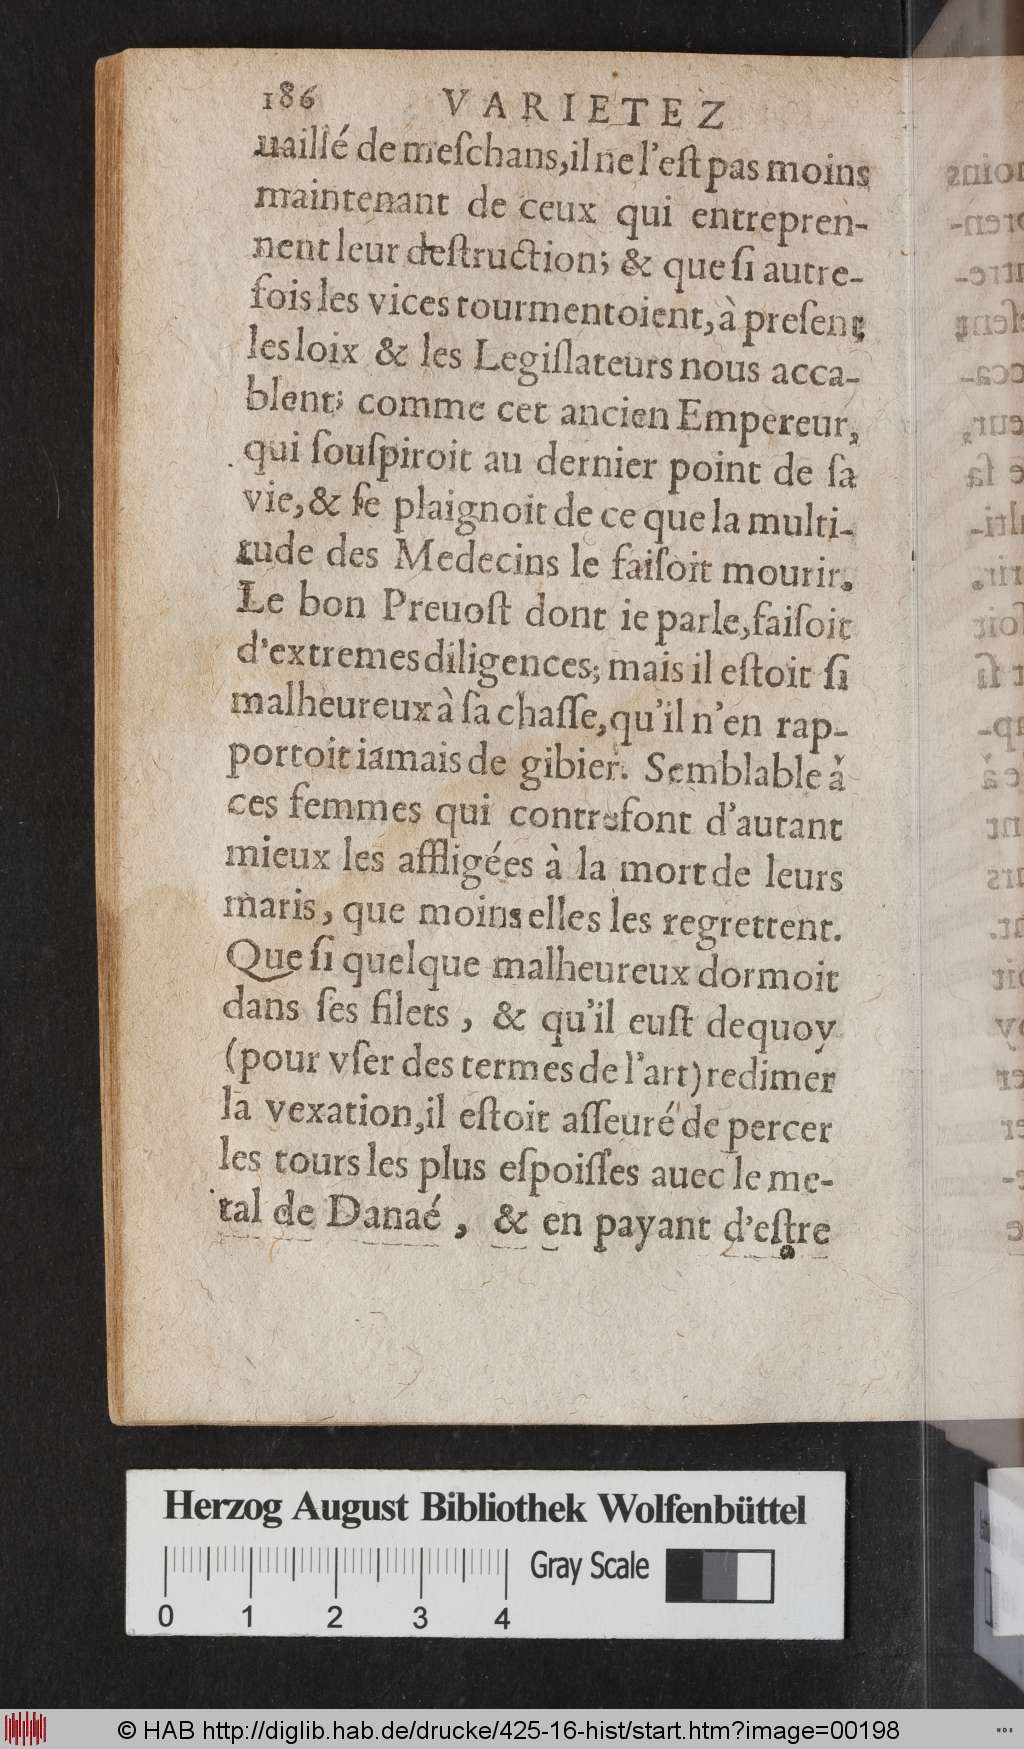 186 VARIETEZ
uaillé de meſchans, il ne l'eſt pas moins
maintenant de ceux qui entrepren-
nent leur deſtruction; & que ſi autre-
fois les vices tourmentoient, à preſent
les loix & les Legiſlateurs nous acca-
blent; comme cet ancien Empereur,
qui ſouſpiroit au dernier point de ſa
vie, & ſe plaignoit de ce que la multi-
tude des Medecins le faiſoit mourir.
Le bon Preuoſt dont ie parle, faiſoit
d'extremes diligences; mais il eſtoit ſi
malheureux à ſa chaſſe, qu'il n'en rap-
portoit iamais de gibier. Semblable à
ces femmes qui contrefont d'autant
mieux les affligées à la mort de leurs
maris, que moins elles les regrettent.
Que ſi quelque malheureux dormoit
dans ſes filets, & qu'il euſt dequoy
(pour vſer des termes de l'art) redimer
la vexation, il eſtoit aſſeuré de percer
les tours les plus eſpoiſſes auec le me-
tal de Danaé, & en payant d'eſtre
Herzog August Bibliothek Wolfenbüttel
Gray Scale
0 1 2 3 4
© HAB http://diglib.hab.de/drucke/425-16-hist/start.htm?image=00198